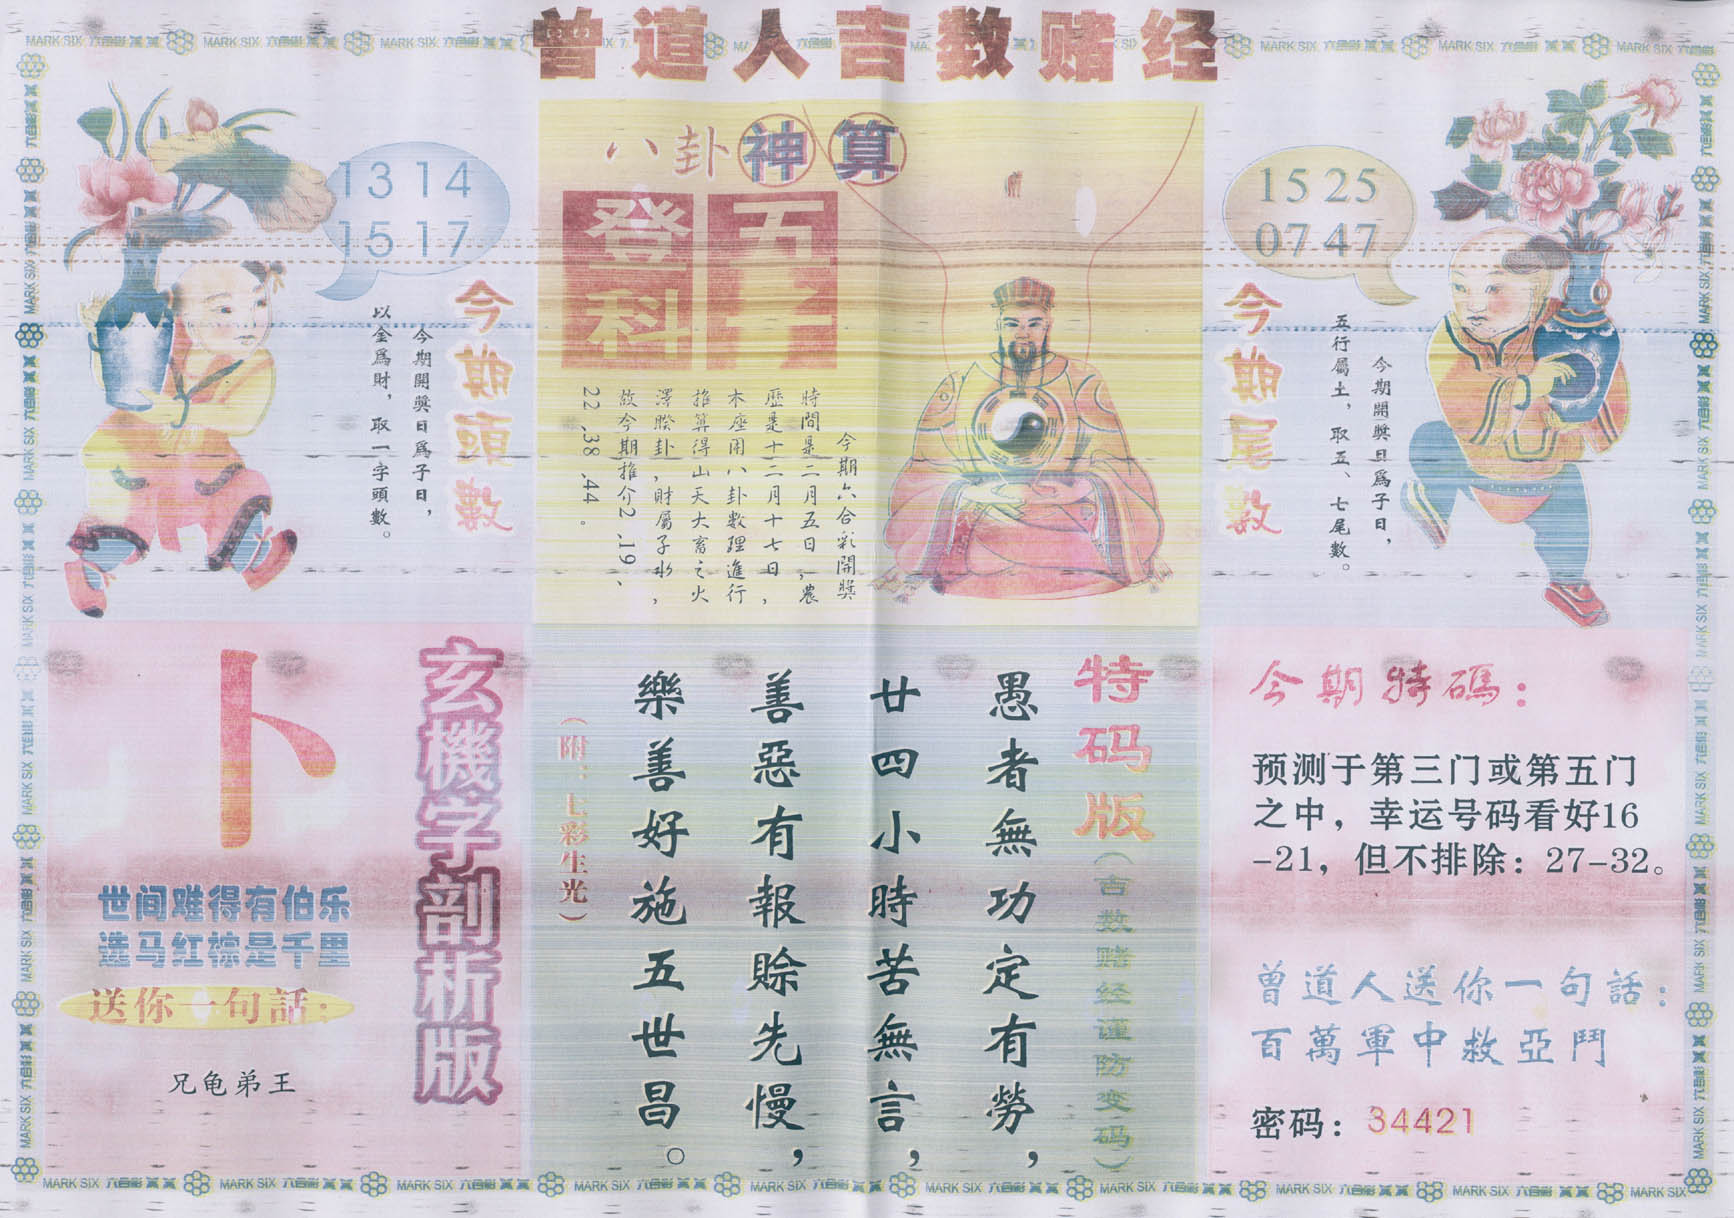 曾道人吉数赌经
MARK SIX 六合彩
八卦神算
五十
登科
今期六合彩開獎
時間是二月五日,農
歷是十二月十七日,
本座用八卦數理進行
推算得山天大畜之火
澤睽卦,財屬子水,
故今期推介2、19、
22、38、44。
13 14
15 17
今期頭數
今期開獎日爲子日,
以金爲財,取一字頭數。
15 25
07 47
今期尾數
今期開獎日爲子日,
五行屬土,取五、七尾數。
玄機字剖析版
卜
世间难得有伯乐
选马红棕是千里
送你一句話:
兄龟弟王
特码版
(吉数赌经谨防变码)
愚者無功定有勞,
廿四小時苦無言,
善惡有報賒先慢,
樂善好施五世昌。
(附:七彩生光)
今期特碼:
预测于第三门或第五门
之中，幸运号码看好16
-21，但不排除：27-32。
曾道人送你一句話:
百萬軍中救亞鬥
密码：34421